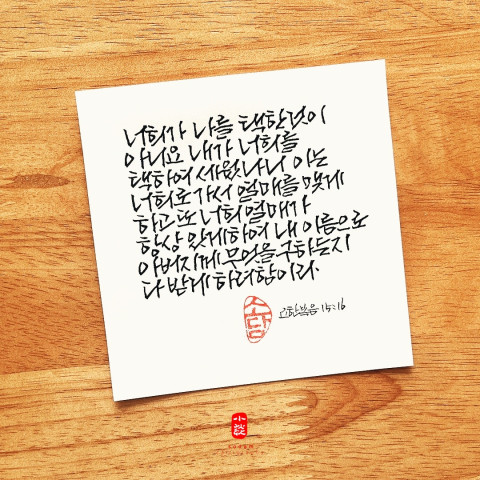 너희가 나를 택한것이
아니요 내가 너희를
택하여 세웠나니 이는
너희로 가서 열매를 맺게
하고 또 너희 열매가
항상 있게하여 내 이름으로
아버지께 무엇을 구하든지
다 받게 하려함이라.
소담
요한복음 15:16
小談